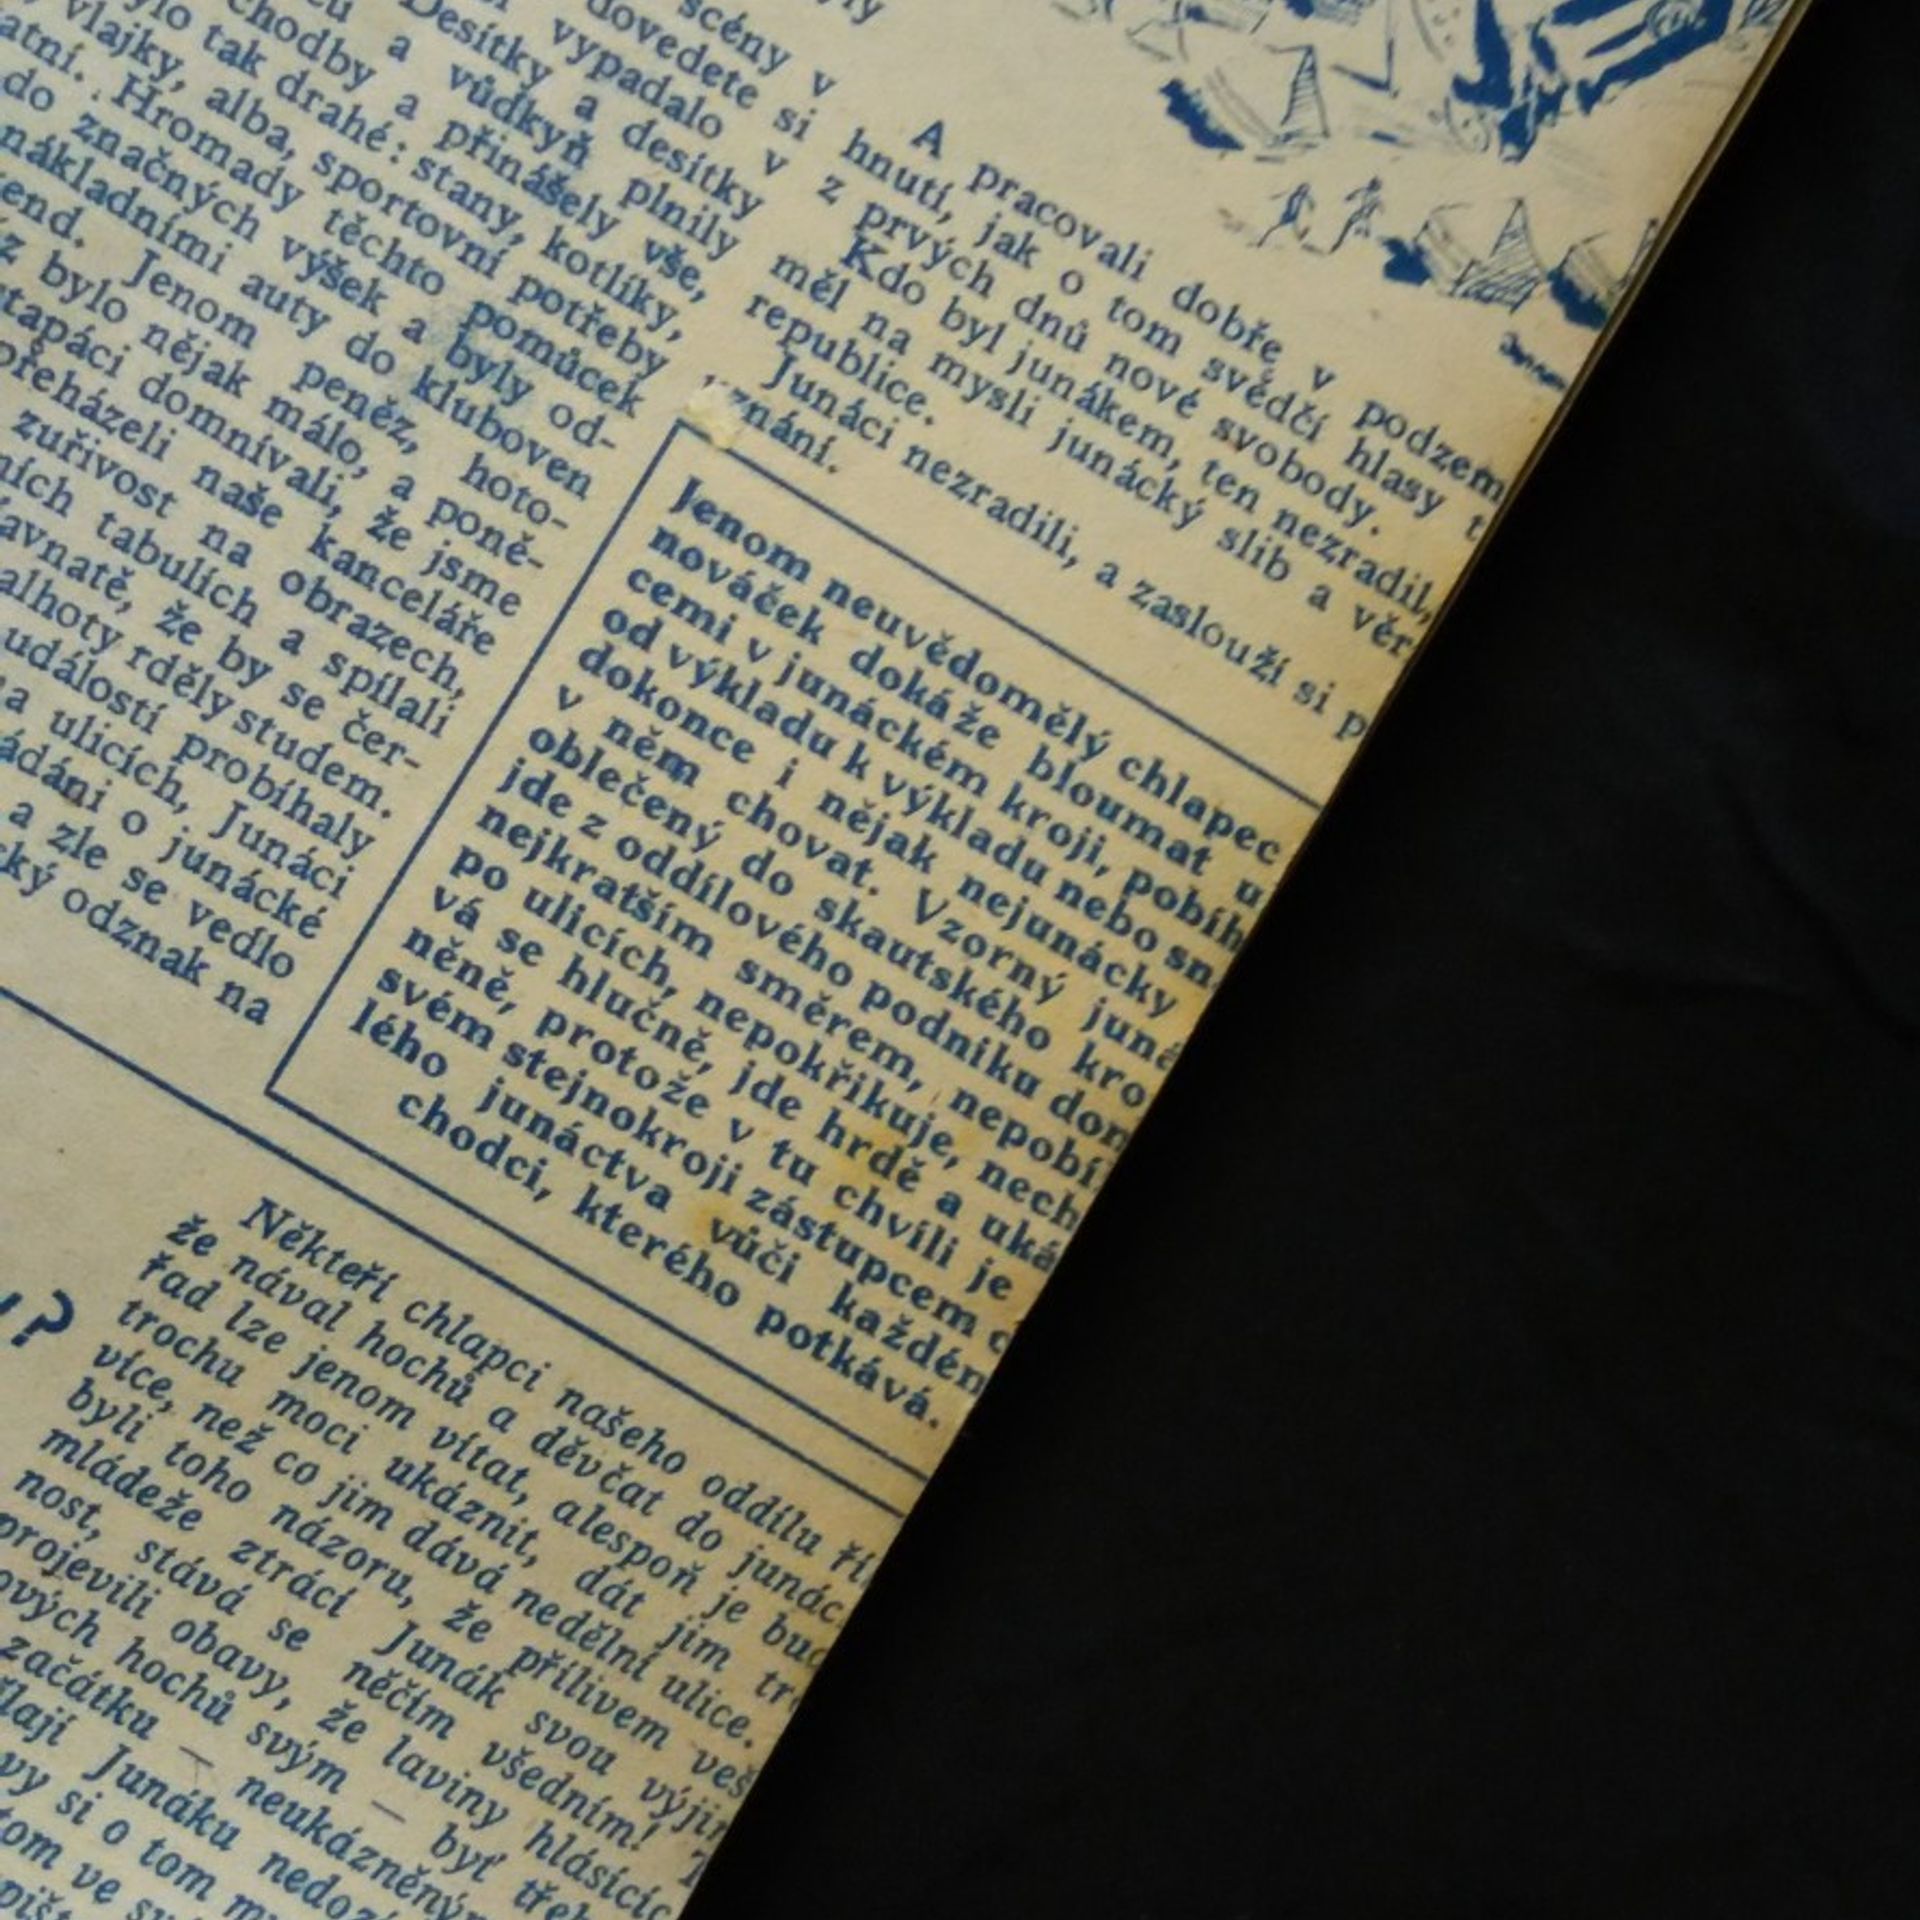 scény v
dovedete si
vypadalo v
Desítky a desítky
a vůdkyň plnily
chodby a přinášely vše,
tak drahé: stany, kotlíky,
vlajky, alba, sportovní potřeby
Hromady těchto pomůcek
do značných výšek a byly od-
nákladními auty do kluboven
Jenom peněz, hoto-
bylo nějak málo, a poně-
domnívali, že jsme
přeházeli naše kanceláře
zuřivost na obrazech,
tabulích a spílali
že by se čer-
rděly studem.
událostí probíhaly
ulicích, Junáci
o junácké
a zle se vedlo
odznak na
A pracovali dobře v podzem
hnutí, jak o tom svědčí hlasy t
z prvých dnů nové svobody.
Kdo byl junákem, ten nezradil,
měl na mysli junácký slib a věr
republice.
Junáci nezradili, a zaslouží si p
uznání.
Jenom neuvědomělý chlapec
nováček dokáže bloumat u
cemi v junáckém kroji, pobíh
od výkladu k výkladu nebo sn
dokonce i nějak nejunácky
v něm chovat. Vzorný juná
oblečený do skautského kro
jde z oddílového podniku dom
nejkratším směrem, nepobí
po ulicích, nepokřikuje, nech
vá se hlučně, jde hrdě a uká
něně, protože v tu chvíli je
svém stejnokroji zástupcem c
lého junáctva vůči každém
chodci, kterého potkává.
Někteří chlapci našeho oddílu ří
že nával hochů a děvčat do junác
řad lze jenom vítat, alespoň je bud
trochu moci ukáznit, dát jim tro
více, než co jim dává nedělní ulice.
byli toho názoru, že přílivem veš
mládeže ztrácí Junák svou výjim
nost, stává se něčím všedním! T
projevili obavy, že laviny hlásícíc
hochů svým — byť třeb
začátku — neukázněným
Junáku nedozí
si o tom
tom ve